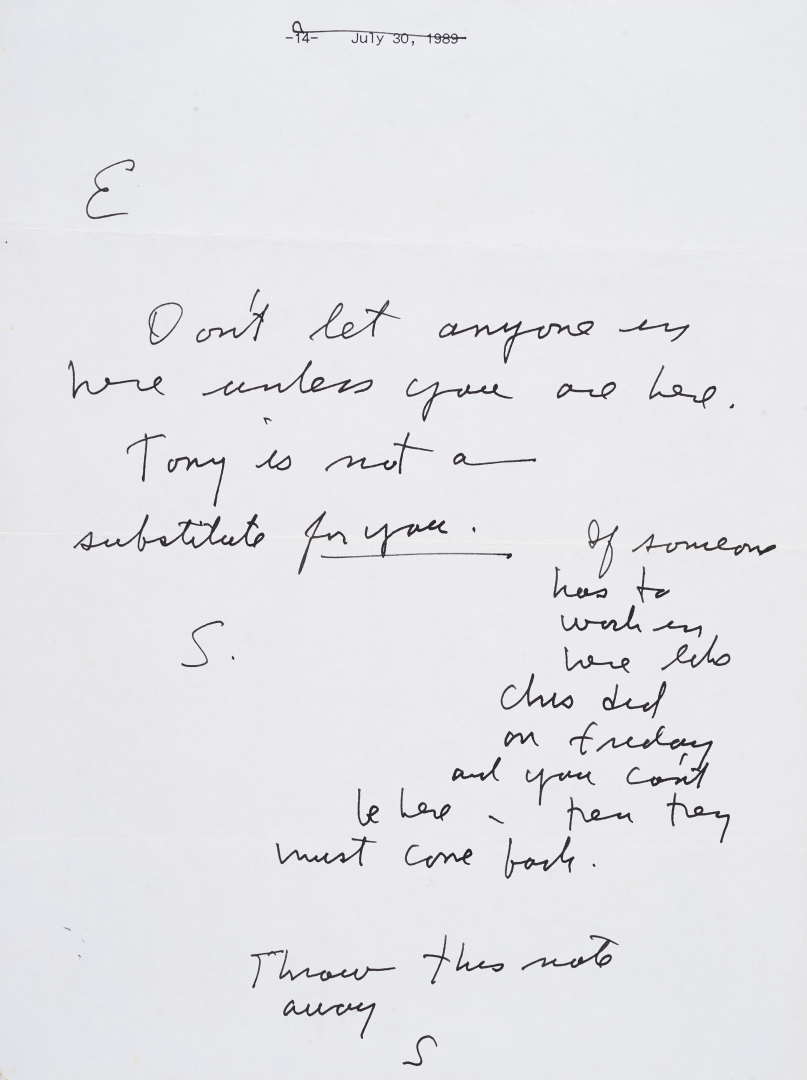 -14- July 30, 1989
E
Don't let anyone in
here unless you are here.
Tony is not a
substitute for you.
If someone
has to
work in
here like
Chris did
on friday
and you can't
be here - then they
must come back.
S.
Throw this note
away
S